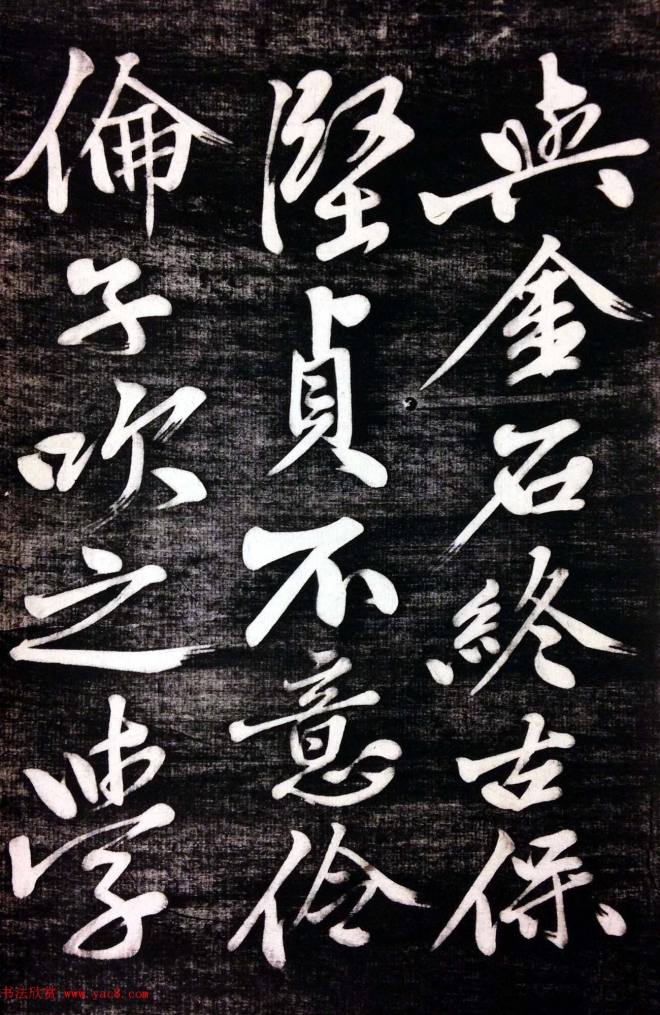 與金石終古保
堅貞不意伶
倫子吹之學
书法欣赏 www.yac8.com